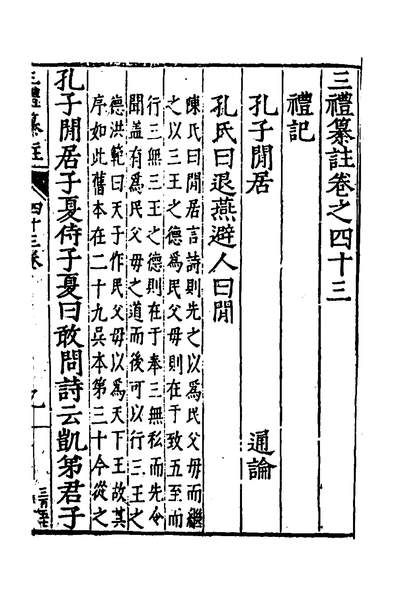 三禮纂註卷之四十三
禮記
孔子閒居 通論
孔氏曰退燕避人曰閒
陳氏曰閒居言詩則先之以爲民父母而繼
之以三王之德爲民父母則在于致五至而
行三無三王之德則在于奉三無私而先令
聞盖有爲民父母之道而後可以行三王之
德洪範曰天子作民父母以爲天下王故其
序如此舊本在二十九吳本第三十今從之
孔子閒居子夏侍子夏曰敢問詩云凱弟君子
三禮纂註 四十三卷